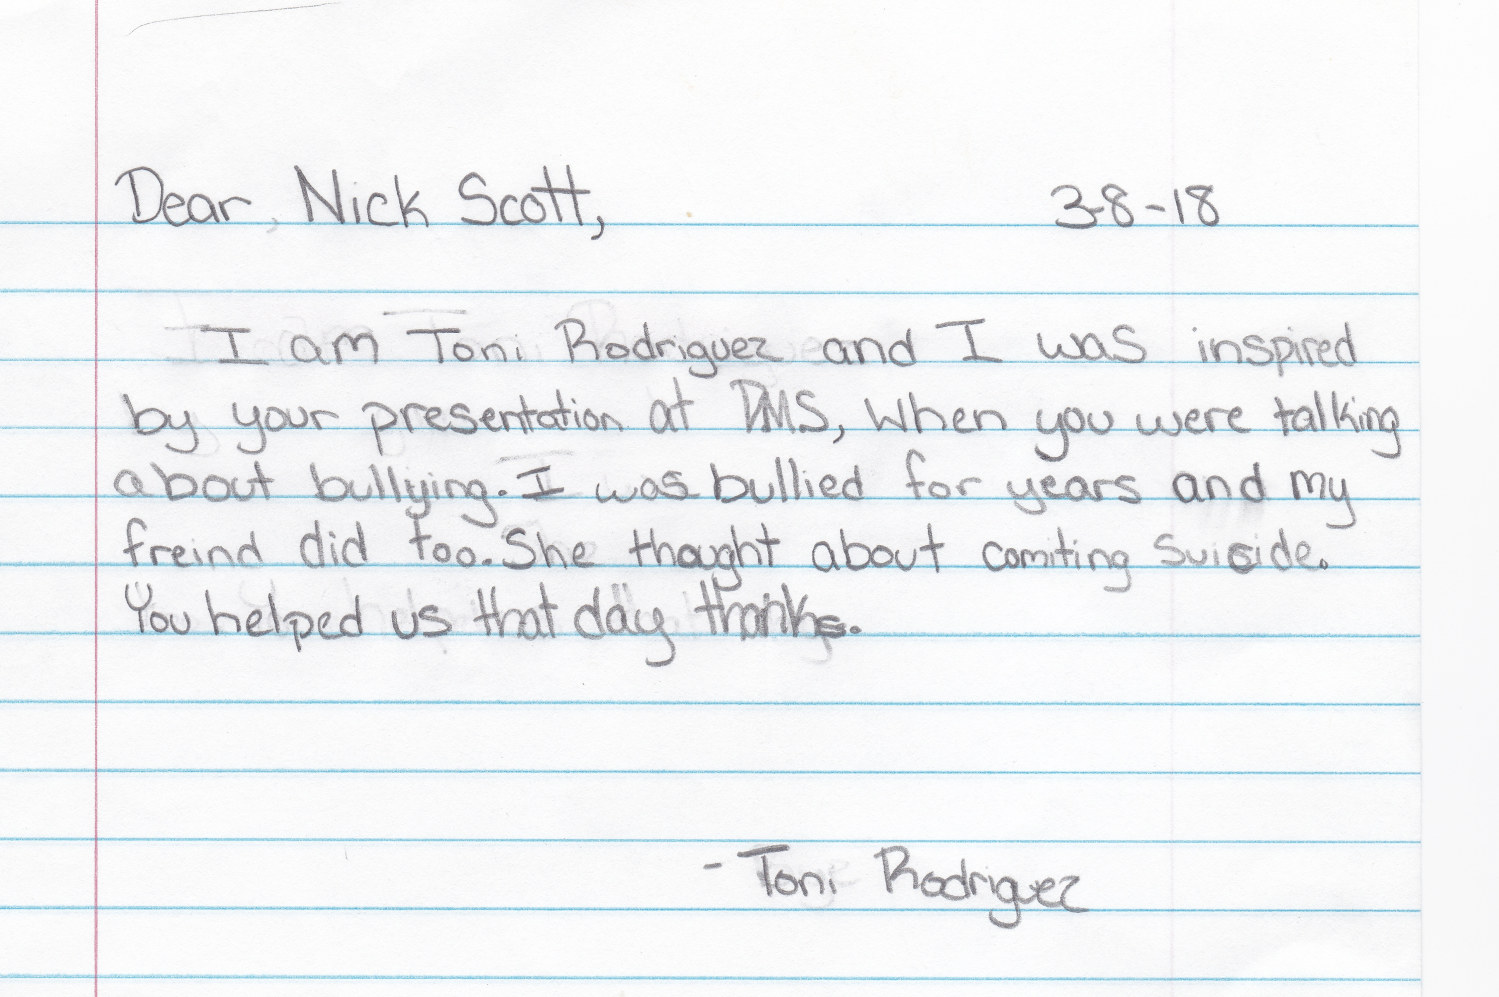 Dear, Nick Scott, 3-8-18
I am Toni Rodriguez and I was inspired
by your presentation at DMS, When you were talking
about bullying. I was bullied for years and my
freind did too. She thought about comiting suicide.
You helped us that day thanks.
- Toni Rodriguez